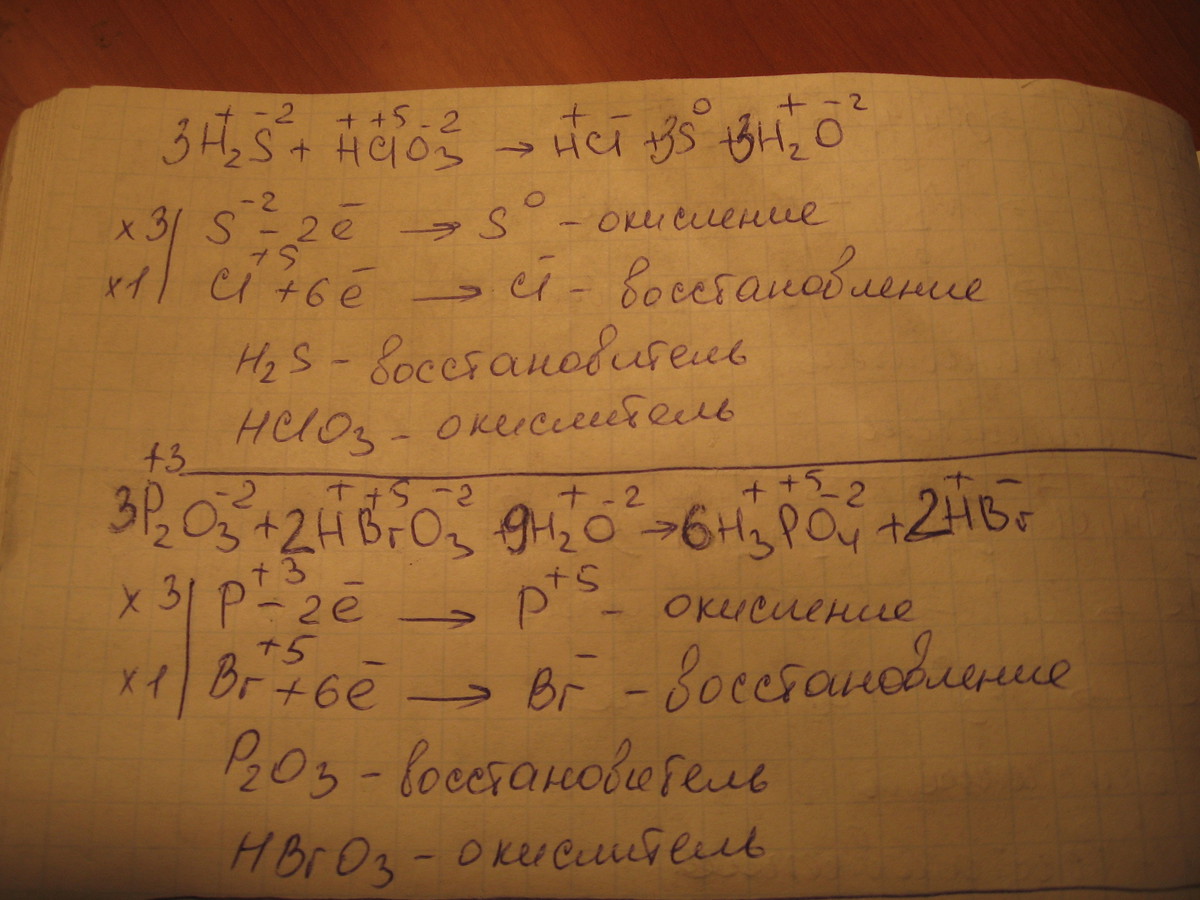 3H₂⁺S⁻² + H⁺Cl⁺⁵O₃⁻² → H⁺Cl⁻ + 3S⁰ + 3H₂⁺O⁻²
×3 | S⁻² - 2e⁻ → S⁰ - окисление
×1 | Cl⁺⁵ + 6e⁻ → Cl⁻ - восстановление
H₂S - восстановитель
HClO₃ - окислитель
3P₂⁺³O₃⁻² + 2H⁺Br⁺⁵O₃⁻² + 9H₂⁺O⁻² → 6H₃⁺P⁺⁵O₄⁻² + 2H⁺Br⁻
×3 | P⁺³ - 2e⁻ → P⁺⁵ - окисление
×1 | Br⁺⁵ + 6e⁻ → Br⁻ - восстановление
P₂O₃ - восстановитель
HBrO₃ - окислитель